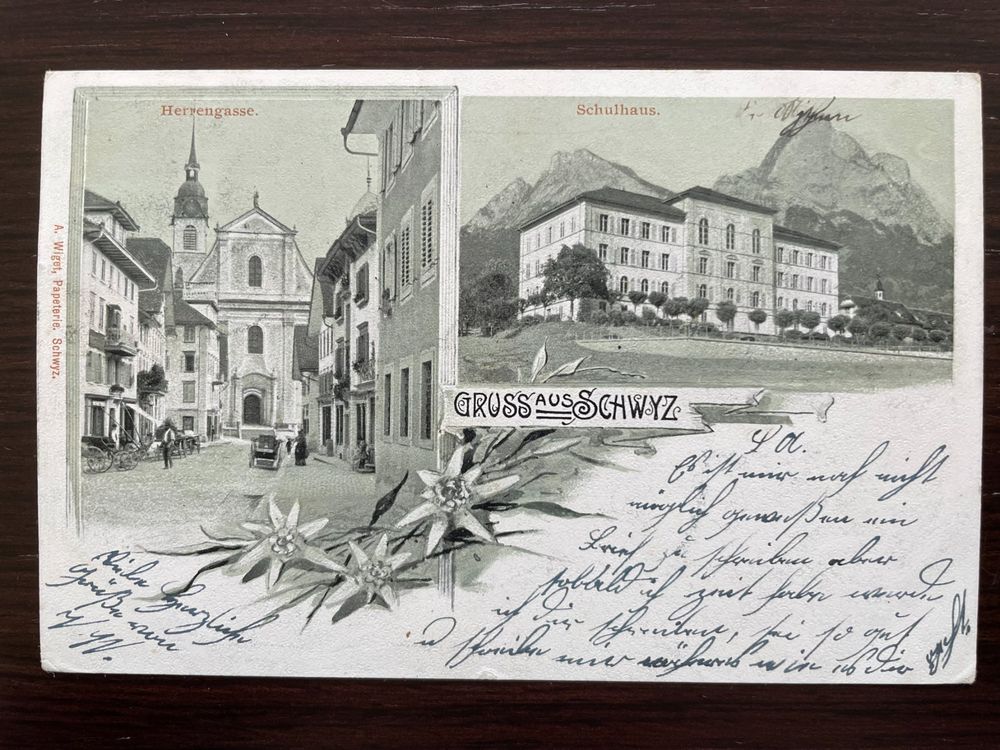 Herrengasse.
Schulhaus.
die Mythen
A. Wiget, Papeterie, Schwyz.
GRUSS AUS SCHWYZ
L A.
Es ist mir noch nicht
möglich gewesen ein
Brief zu schreiben aber
sobald ich zeit habe werde
ich dir schreiben, sei so gut
u schreibe mir wie es dir
geht.
Viele Herzliche
Grüße von